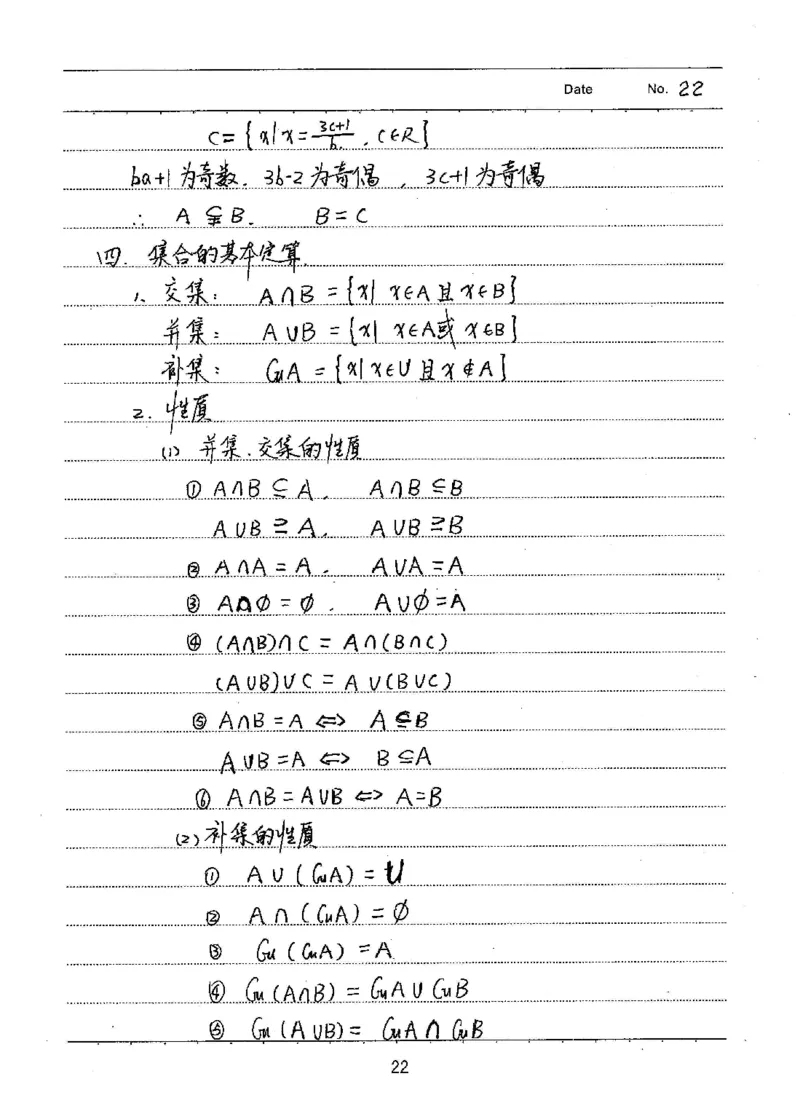 Date No. 22
C={x|x=\frac{3c+1}{6}, C∈R}
6a+1为奇数, 3b-2为奇偶, 3c+1为奇偶
∴ A⫋B. B=C
四. 集合的基本定算
1. 交集: A∩B={x| x∈A且x∈B}
并集: A∪B={x| x∈A或x∈B}
补集: ∁uA={x|x∈U且x∉A}
2. 性质
(1) 并集、交集的性质
① A∩B⊆A, A∩B⊆B
A∪B⊇A, A∪B⊇B
② A∩A=A. A∪A=A
③ A∩∅=∅. A∪∅=A
④ (A∩B)∩C=A∩(B∩C)
(A∪B)∪C=A∪(B∪C)
⑤ A∩B=A⇔A⊆B
A∪B=A⇔B⊆A
⑥ A∩B=A∪B⇔A=B
(2)补集的性质
① A∪(∁uA)=U
② A∩(∁uA)=∅
③ ∁u(∁uA)=A
④ ∁u(A∩B)=∁uA∪∁uB
⑤ ∁u(A∪B)=∁uA∩∁uB
22